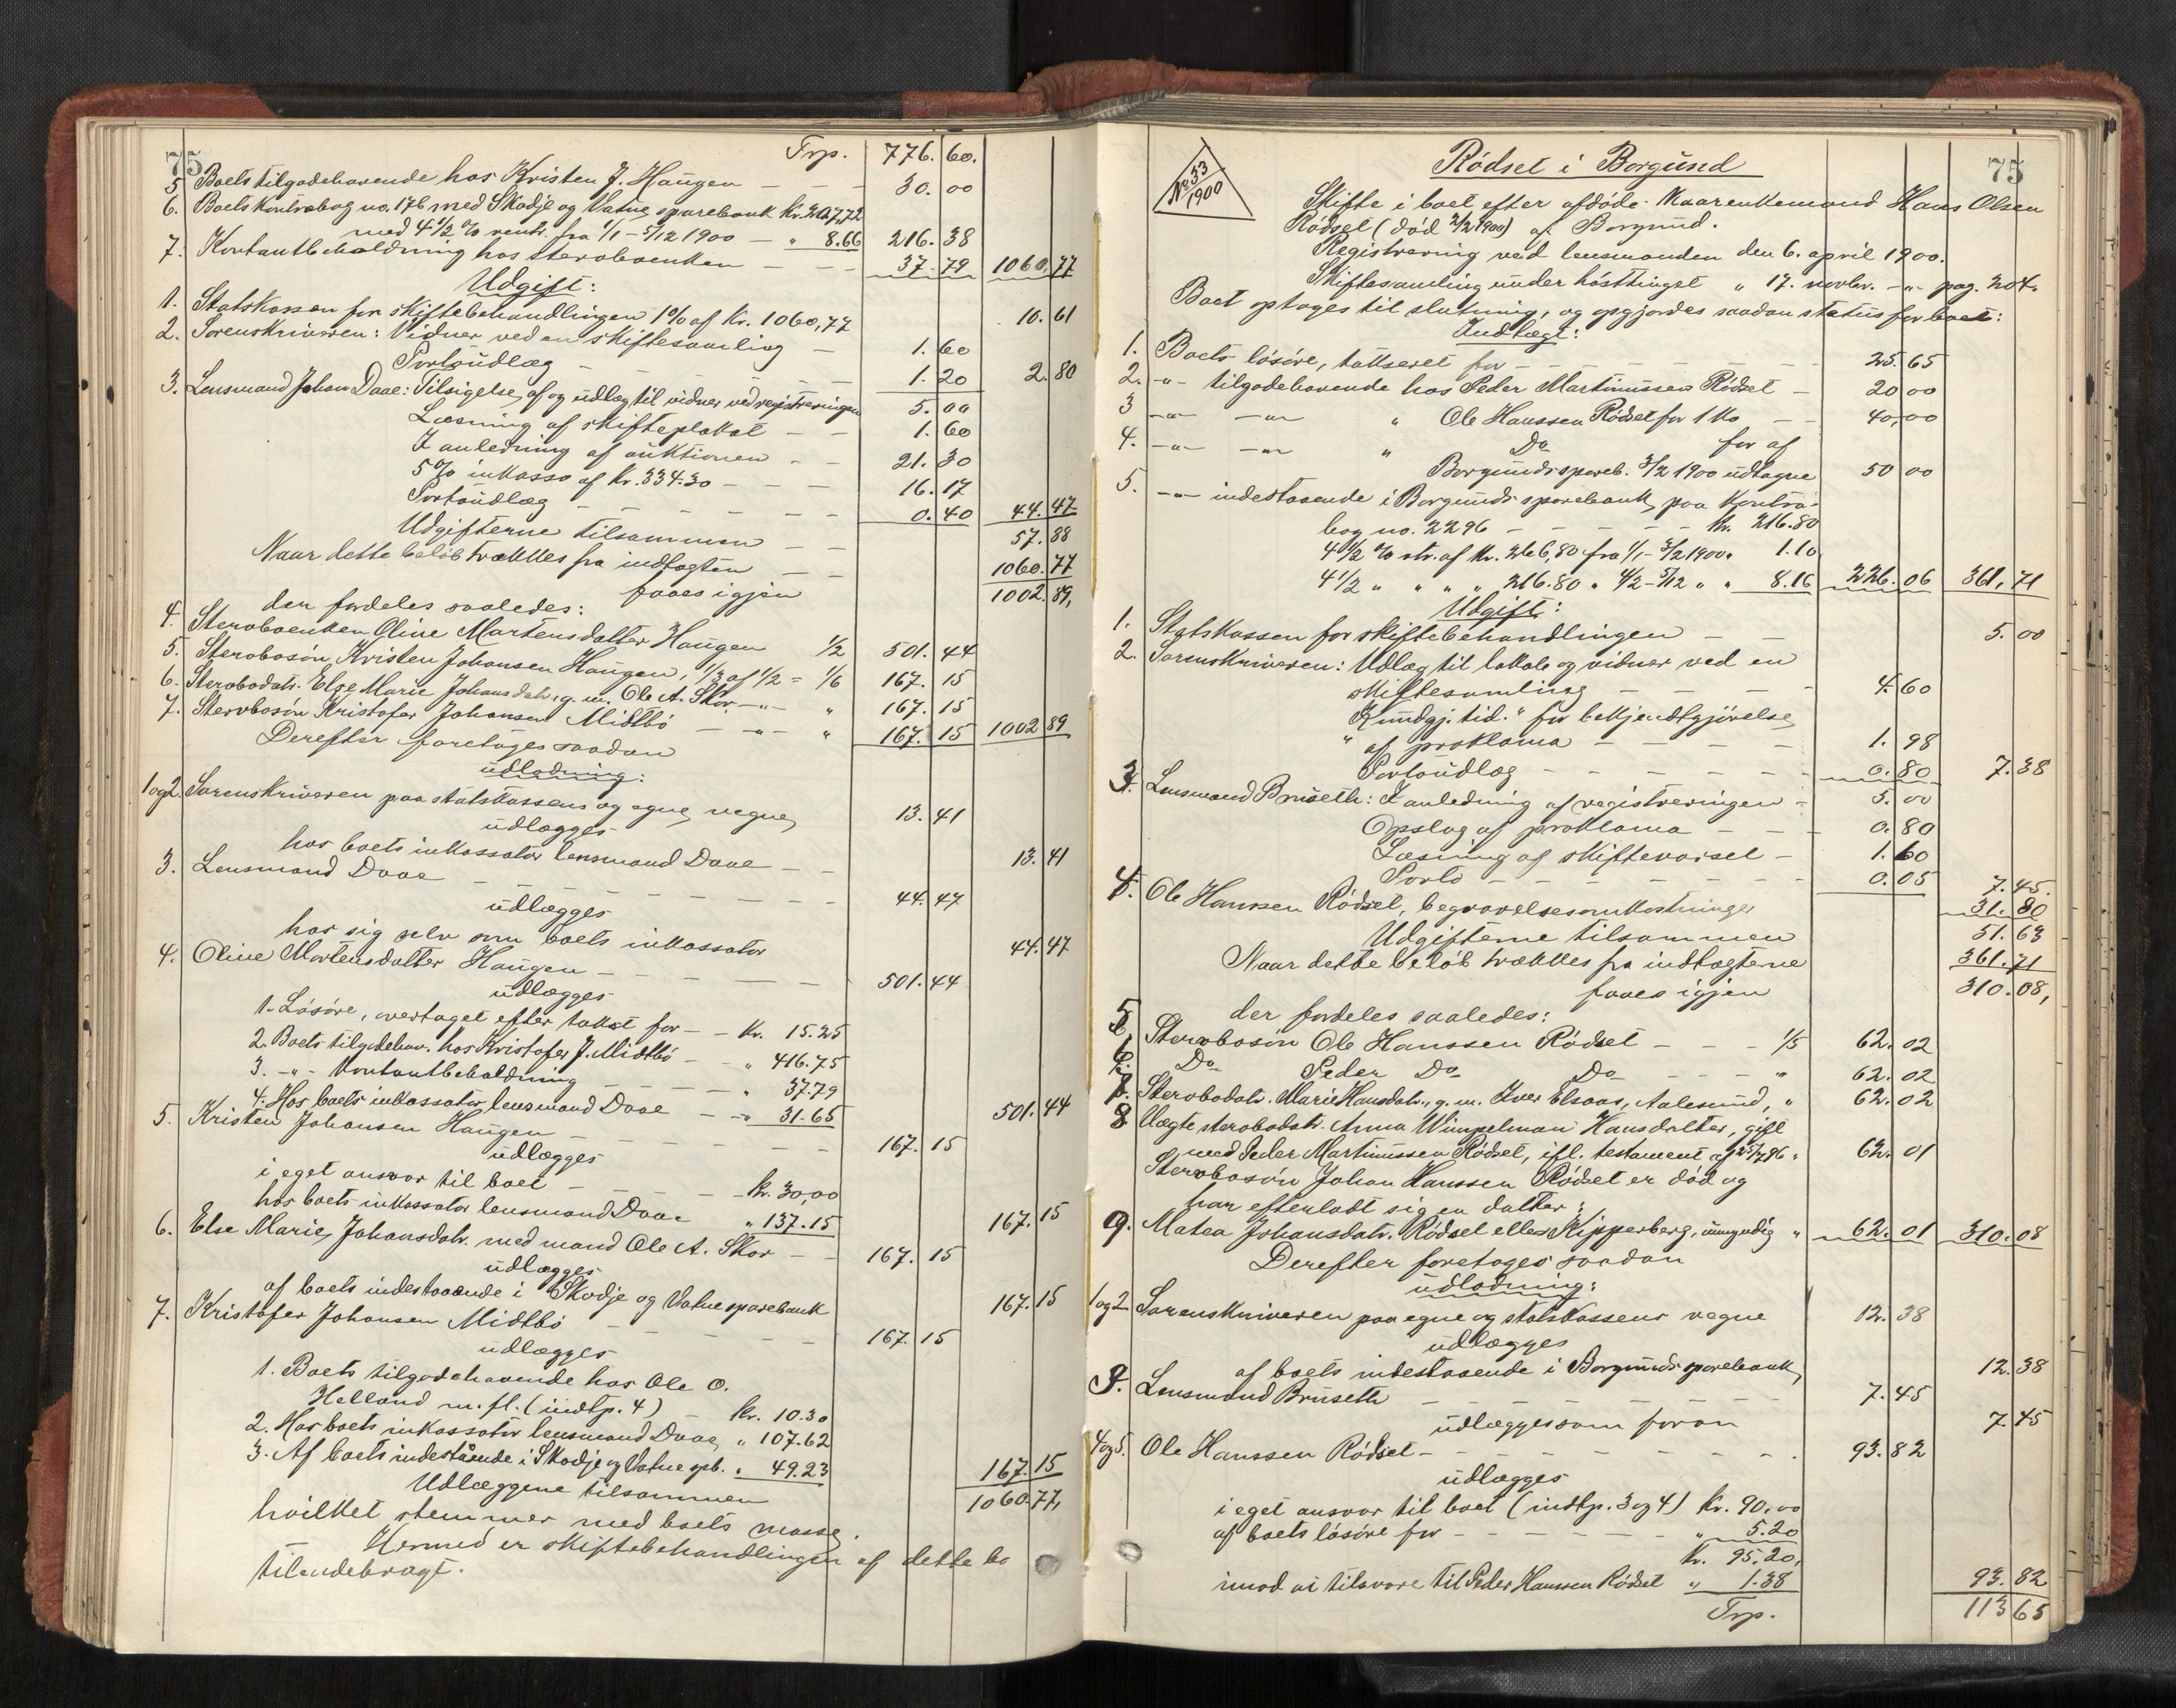 75
Trp. 776.60.
5 Boets tilgodehavende hos Kristen J. Haugen — — 30.00
6. Boets kontrabog no. 176 med Skodje og Vatne sparebank Kr. 207,72
med 4 1/2 % rentr. fra 1/1 – 5/12 1900 — „ 8.66 216.38
7. Kontantbeholdning hos sterboenken — — — 37.79 1060,77
Udgift:
1. Statskassen for skiftebehandlingen 1% af Kr. 1060,77 10.61
2. Sorenskriveren: Vidner ved en skiftesamling — 1.60
Portoudlæg — — — — 1.20 2.80
3. Lensmand Johan Daae: Tilsigelse af og udlæg til vidner ved registreringen 5.00
Læsning af skifteplakat — — 1.60
I anledning af auktionen — — 21.30
5% inkasso af Kr. 334.30 — — — 16.17
Portoudlæg — — — — — 0.40 44.47
Udgifterne tilsammen — — 57.88
Naar dette beløb trækkes fra indtægten — — 1060.77
faaes igjen 1002.89,
der fordeles saaledes:
4. Sterboenken Oline Martensdatter Haugen 1/2 501.44
5. Sterbosøn Kristen Johansen Haugen, 1/3 af 1/2 = 1/6 167.15
6. Sterbodatr. Else Marie Johansdatr., g. m. Ole A. Skor — „ — „ 167.15
7. Sterbosøn Kristofer Johansen Midtbø — „ — „ 167.15 1002 89
Derefter foretages saadan
udlodning:
1 og 2. Sorenskriveren paa statskassens og egne vegne 13.41
udlægges
hos boets inkassator lensmand Daae — — 13.41
3. Lensmand Daae — — — — — — — 44.47
udlægges
hos sig selv som boets inkassator 44.47
4. Oline Martensdatter Haugen — — — — — 501.44
udlægges
1. Løsøre, overtaget efter takst for — — Kr. 15.25
2. Boets tilgodehav. hos Kristofer J. Midtbø — „ 416.75
3. — „ — Kontantbeholdning — — — „ 37.79
4. Hos boets inkassator lensmand Daae — „ 31.65 501.44
5. Kristen Johansen Haugen — — — — — 167.15
udlægges
i eget ansvar til boet — — — — Kr. 30,00
hos boets inkassator lensmand Daae „ 137.15 167.15
6. Else Marie Johansdatr. med mand Ole A. Skor — — 167.15
udlægges
af boets indestaaende i Skodje og Vatne sparebank 167.15
7. Kristofer Johansen Midtbø — — — — — 167.15
udlægges
1. Boets tilgodehavende hos Ole O.
Helland m. fl. (indtp. 4) — Kr. 10.30
2. Hos boets inkassator lensmand Daae „ 107.62
3. Af boets indestående i Skodje og Vatne spb. „ 49.23 167.15
Udlæggene tilsammen 1060.77,
hvilket stemmer med boets masse.
Hermed er skiftebehandlingen af dette bo
tilendebragt.
75
No 33
1900
Rødset i Borgund
Skifte i boet efter afdøde Kaarenkemand Hans Olsen
Rødset (død 3/2 1900) af Borgund.
Registrering ved lensmanden den 6. april 1900.
Skiftesamling under høsttinget „ 17. novbr. — „ — pag. 204.
Boet optoges til slutning, og opgjordes saadan status for boet:
Indtægt:
1. Boets løsøre, takseret for — — — — — — 25.65
2. — „ — tilgodehavende hos Peder Martinussen Rødset — 20 00
3 — „ — — „ — „ Ole Hanssen Rødset for 1 ko — — 40,00
4. — „ — — „ — „ Do for af
Borgunds spareb. 3/2 1900 udtagne 50 00
5. — „ — indestaaende i Borgunds sparebank paa kontra-
bog no. 2296 — — — — — Kr. 216.80
4 1/2 % rtr. af Kr. 266,80 fra 1/1 – 3/2 1900 „ 1.10
4 1/2 „ „ „ „ 216.80 „ 4/2 – 5/12 „ „ 8.16 226.06 361,71
Udgift:
1. Statskassen for skiftebehandlingen — — 5.00
2. Sorenskriveren: Udlæg til lokale og vidner ved en
skiftesamling — — — — — 4.60
„Kundgj. tid.“ for bekjendtgjørelse
af proklama — — — — 1.98
Portoudlæg — — — — — — 0.80 7.38
3. Lensmand Bruseth: I anledning af registreringen — 5.00
Opslag af proklama — — — 0.80
Læsning af skiftevarsel — 1.60
Porto — — — — — — — 0.05 7.45.
4. Ole Hanssen Rødset, begravelsesomkostninger 31.80
Udgifterne tilsammen 51.63
Naar dette beløb trækkes fra indtægterne 361.71
faaes igjen 310.08,
der fordeles saaledes:
5. Sterbosøn Ole Hanssen Rødset — — — 1/5 62.02
6. Do Peder Do Do — — — „ 62.02
7. Sterbodatr. Marie Hansdatr., g. m. Iver Elsaas, Aalesund, „ 62.02
8 Uægte sterbodatr. Anna Wimpelman Hansdatter, gift
med Peder Martinussen Rødset, ifl. testament af 25/7 86 „ 62.01
Sterbosøn Johan Hanssen Rødset er død og
har efterladt sig en datter:
9. Matea Johansdatr. Rødset eller Kipperberg, umyndig „ 62.01 310.08
Derefter foretages saadan
udlodning:
1 og 2. Sorenskriveren paa egne og statskassens vegne 12.38
udlægges
af boets indestaaende i Borgunds sparebank, 12.38
3. Lensmand Bruseth — — — — — — 7.45
udlægges som foran 7.45
4 og 5. Ole Hanssen Rødset — — — — — — — 93.82
udlægges
i eget ansvar til boet (indtp. 3 og 4) Kr. 90,00
af boets løsøre for — — — — — „ 5.20
Kr. 95.20,
imod at tilsvare til Peder Hanssen Rødset „ 1.38 93.82
Trp. 113 65